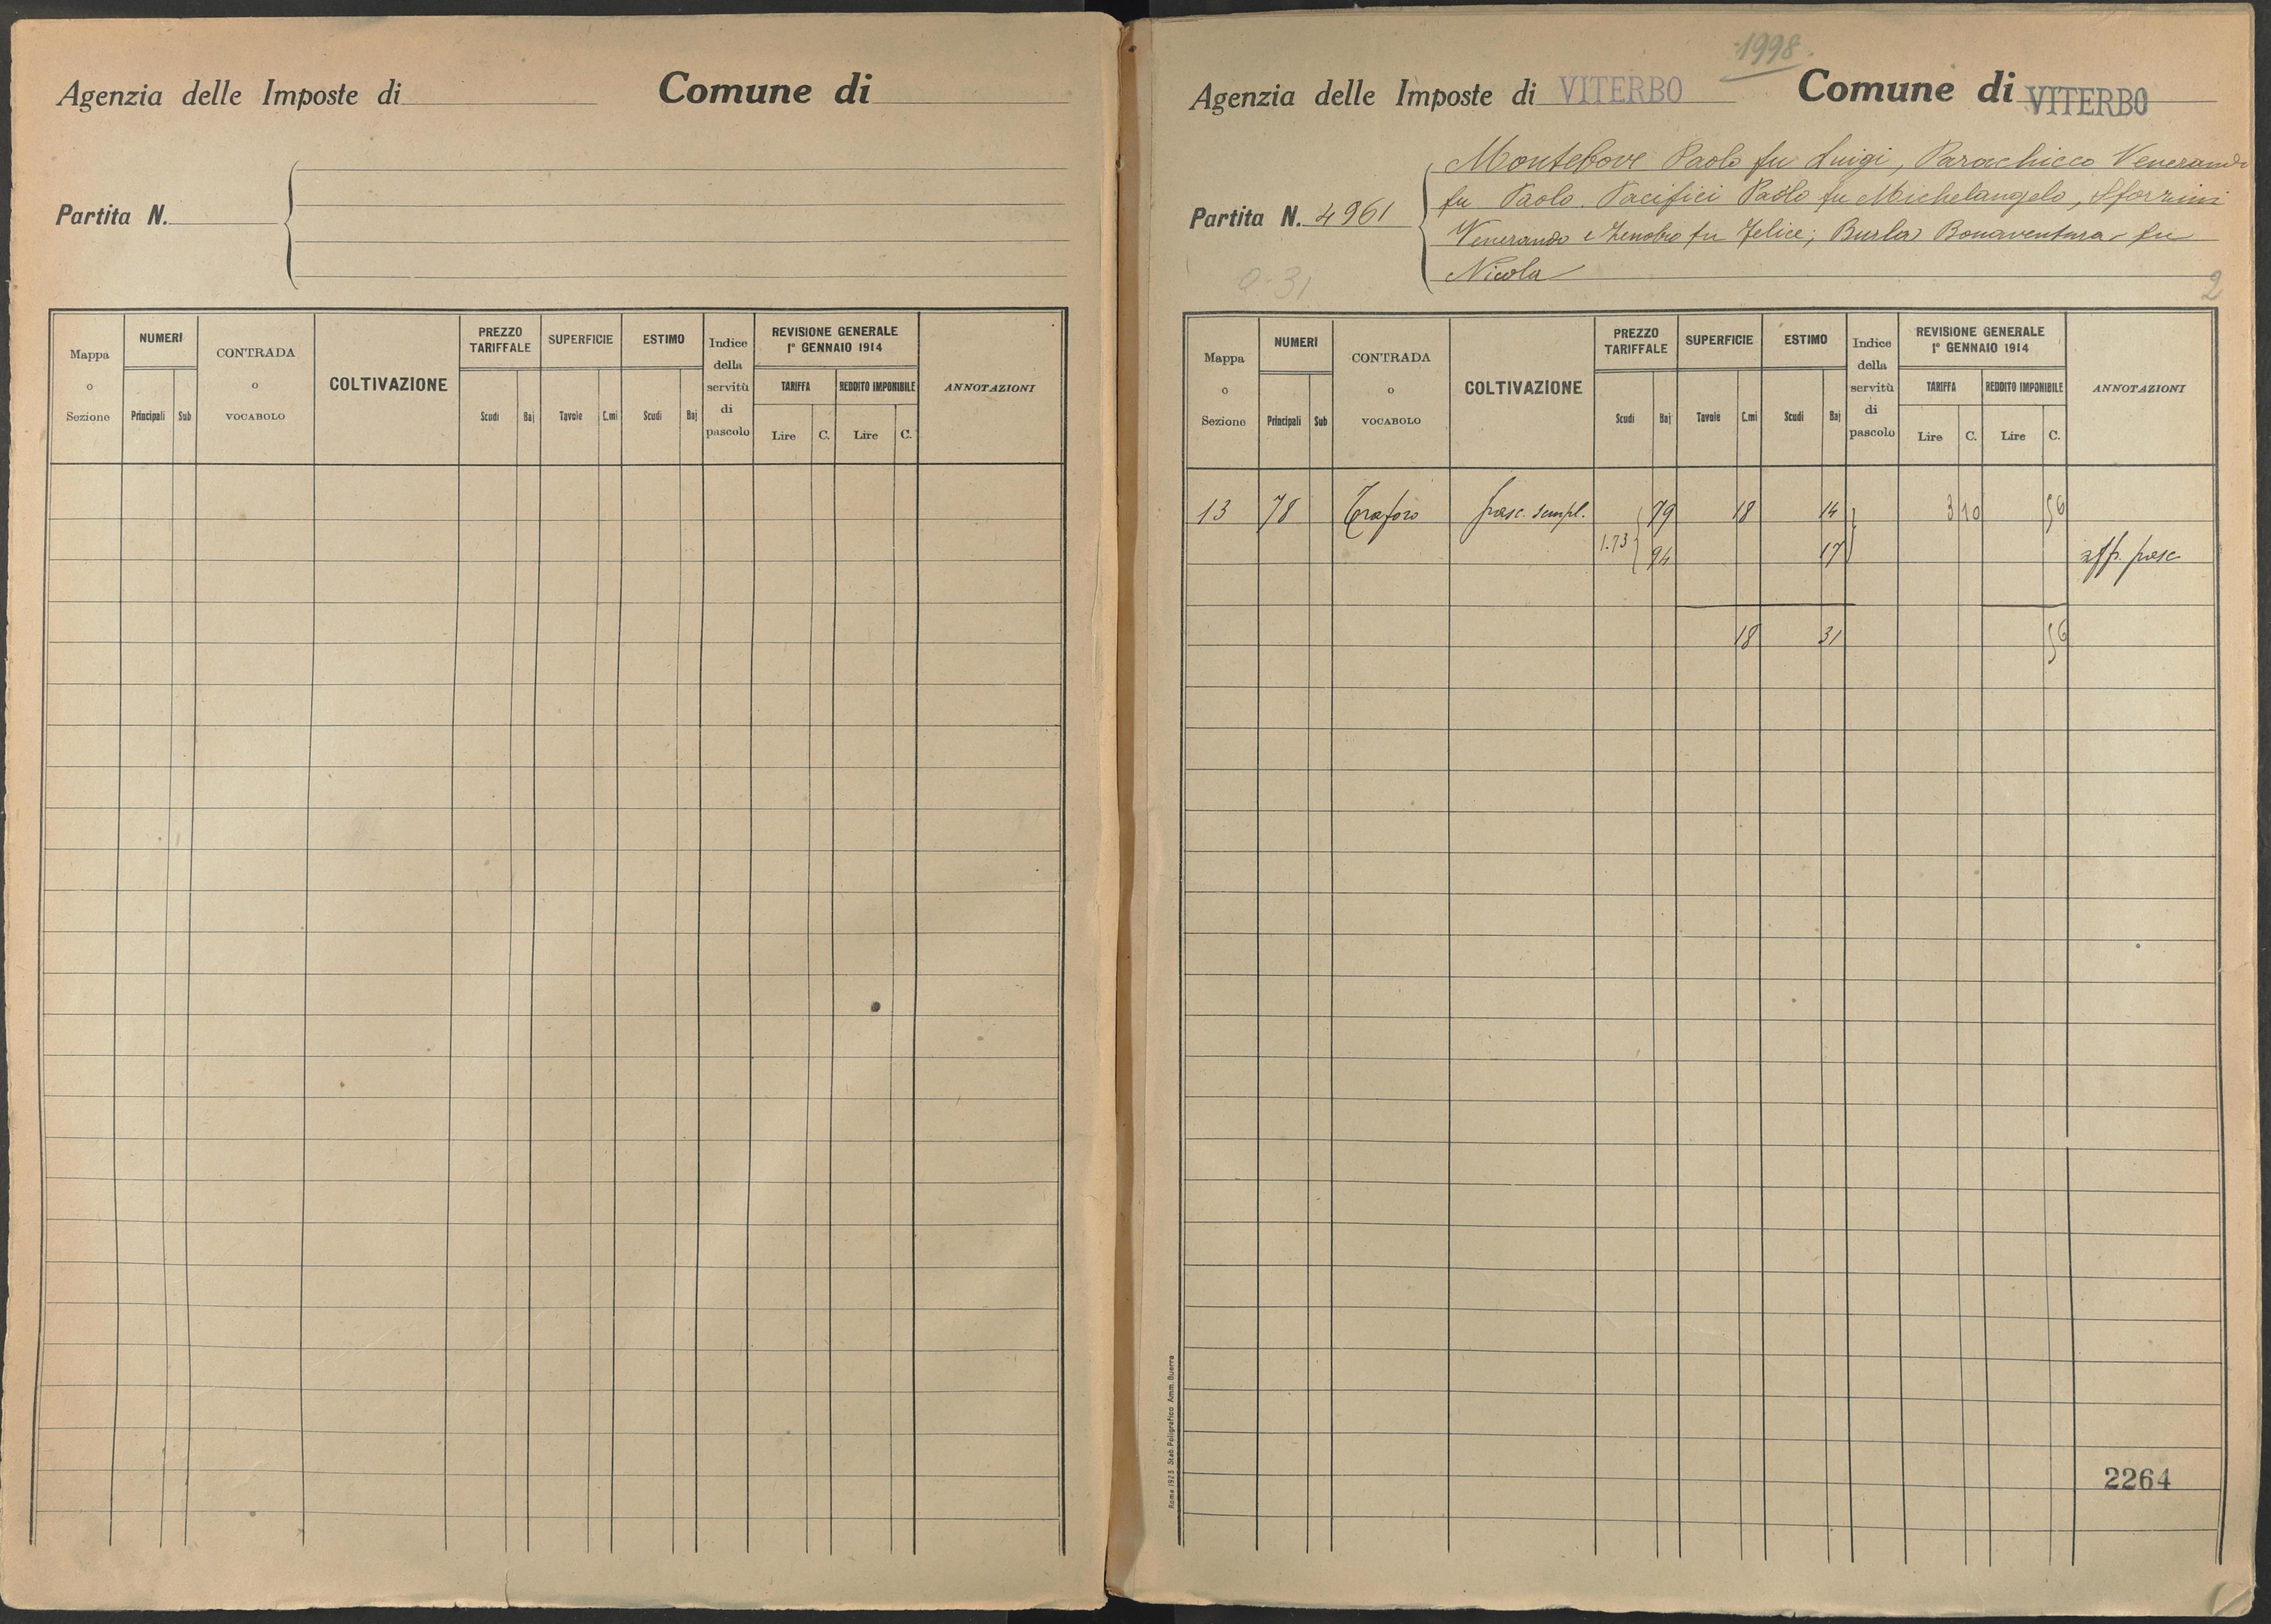 Agenzia delle Imposte di Comune di
Partita N.
Mappa o Sezione NUMERI Principali Sub CONTRADA o VOCABOLO COLTIVAZIONE PREZZO TARIFFALE Scudi Baj SUPERFICIE Tavole C.mi ESTIMO Scudi Baj Indice della servitù di pascolo REVISIONE GENERALE 1° GENNAIO 1914 TARIFFA Lire C. REDDITO IMPONIBILE Lire C. ANNOTAZIONI
1998
Agenzia delle Imposte di VITERBO Comune di VITERBO
Montebove Paolo fu Luigi, Parachicco Venerando
fu Paolo. Pacifici Paolo fu Michelangelo, Sforzini
Partita N. 4961
Venerando e Zenobio fu Felice; Burla Bonaventura fu
Nicola
0-31
2
Mappa o Sezione NUMERI Principali Sub CONTRADA o VOCABOLO COLTIVAZIONE PREZZO TARIFFALE Scudi Baj SUPERFICIE Tavole C.mi ESTIMO Scudi Baj Indice della servitù di pascolo REVISIONE GENERALE 1° GENNAIO 1914 TARIFFA Lire C. REDDITO IMPONIBILE Lire C. ANNOTAZIONI
13 78 Traforo pasc. sempl. 79 18 14 3 10 56
1.73 94 17 aff. pasc
18 31 56
2264
Roma 1923 Stab. Poligrafico Amm. Guerra